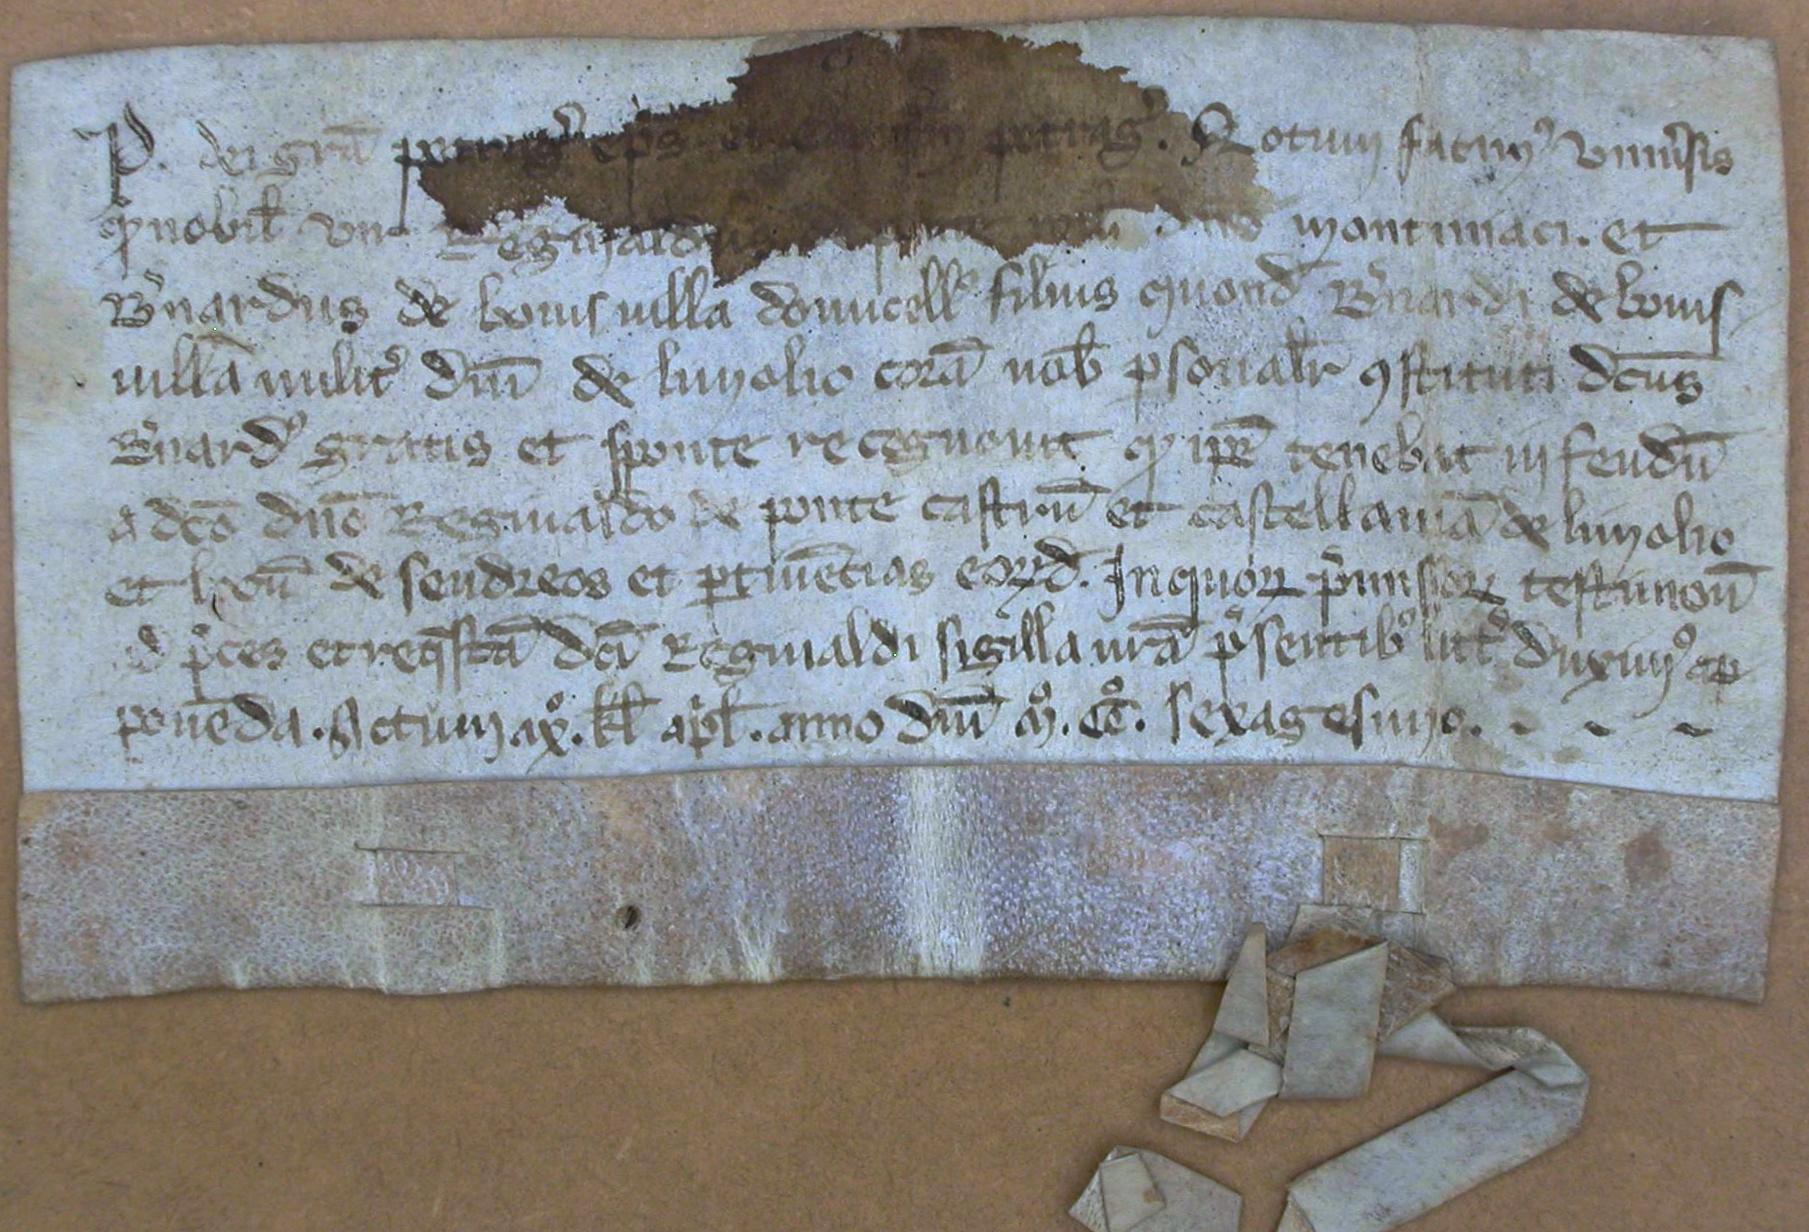 P. dei grã petrag᷒ ep̃s et petrag᷒. Notum facim᷒ vniũsis
ꝙ nobil̃ vir Reginaldus montinhaci. et
B̃nardus de bouisuilla domicell᷒ filius quond̃ B̃nardi de bouis
uilla milit᷒ dñi de limolio corã nob̃ ꝑsonalr̃ ꝯstituti dc̃us
B̃nard᷒ gratis et sponte recognouit ꝙ ip̃e tenebat in feudũ
a dc̃o dño Reginaldo de ponte castrũ et castellaniã de limolio
et de sendreos et ꝑtinẽcias eorꝝd̃. In quorꝝ p̃missorꝝ testimoñ
ad p̃ces et req̃stã dc̃i Reginaldi sigilla nr̃a p̃sentib᷒ litt᷒ duxim᷒ ap
ponẽda. Actum .xͦ. kl̃ apl̃. anno dñi mͦ. ccͦ. sexagesimo. - - -